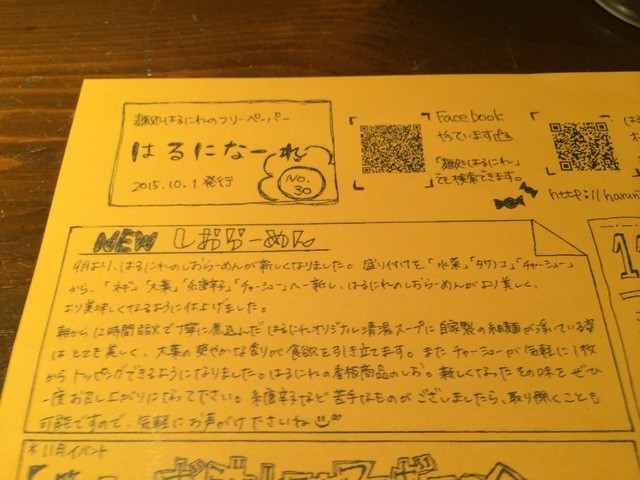 麺処はるにれのフリーペーパー
はるになーれ
2015.10.1発行
No.30
Facebook
やっています
「麺処はるにれ」
でも検索できます。
http://harun
NEW しおらーめん
9月より、はるにれのしおらーめんが新しくなりました。盛り付けを「水菜」「タケノコ」「チャーシュー」
から、「ネギ」「大葉」「糸唐辛子」「チャーシュー」へ一新し、はるにれのしおらーめんがより美しく、
より美味しくなるように仕上げました。
朝から12時間弱火で丁寧に煮込んだはるにれオリジナル清湯スープに自家製の細麺が浮いている姿
はとても美しく、大葉の爽やかな香りが食欲を引き立てます。またチャーシューが気軽に1枚
からトッピングできるようになりました。はるにれの看板商品のしお。新しくなったその味をぜひ
一度お召し上がりになって下さい。糸唐辛子など苦手なものがございましたら、取り除くことも
可能ですので、気軽にお声がけくださいね
11月イベント